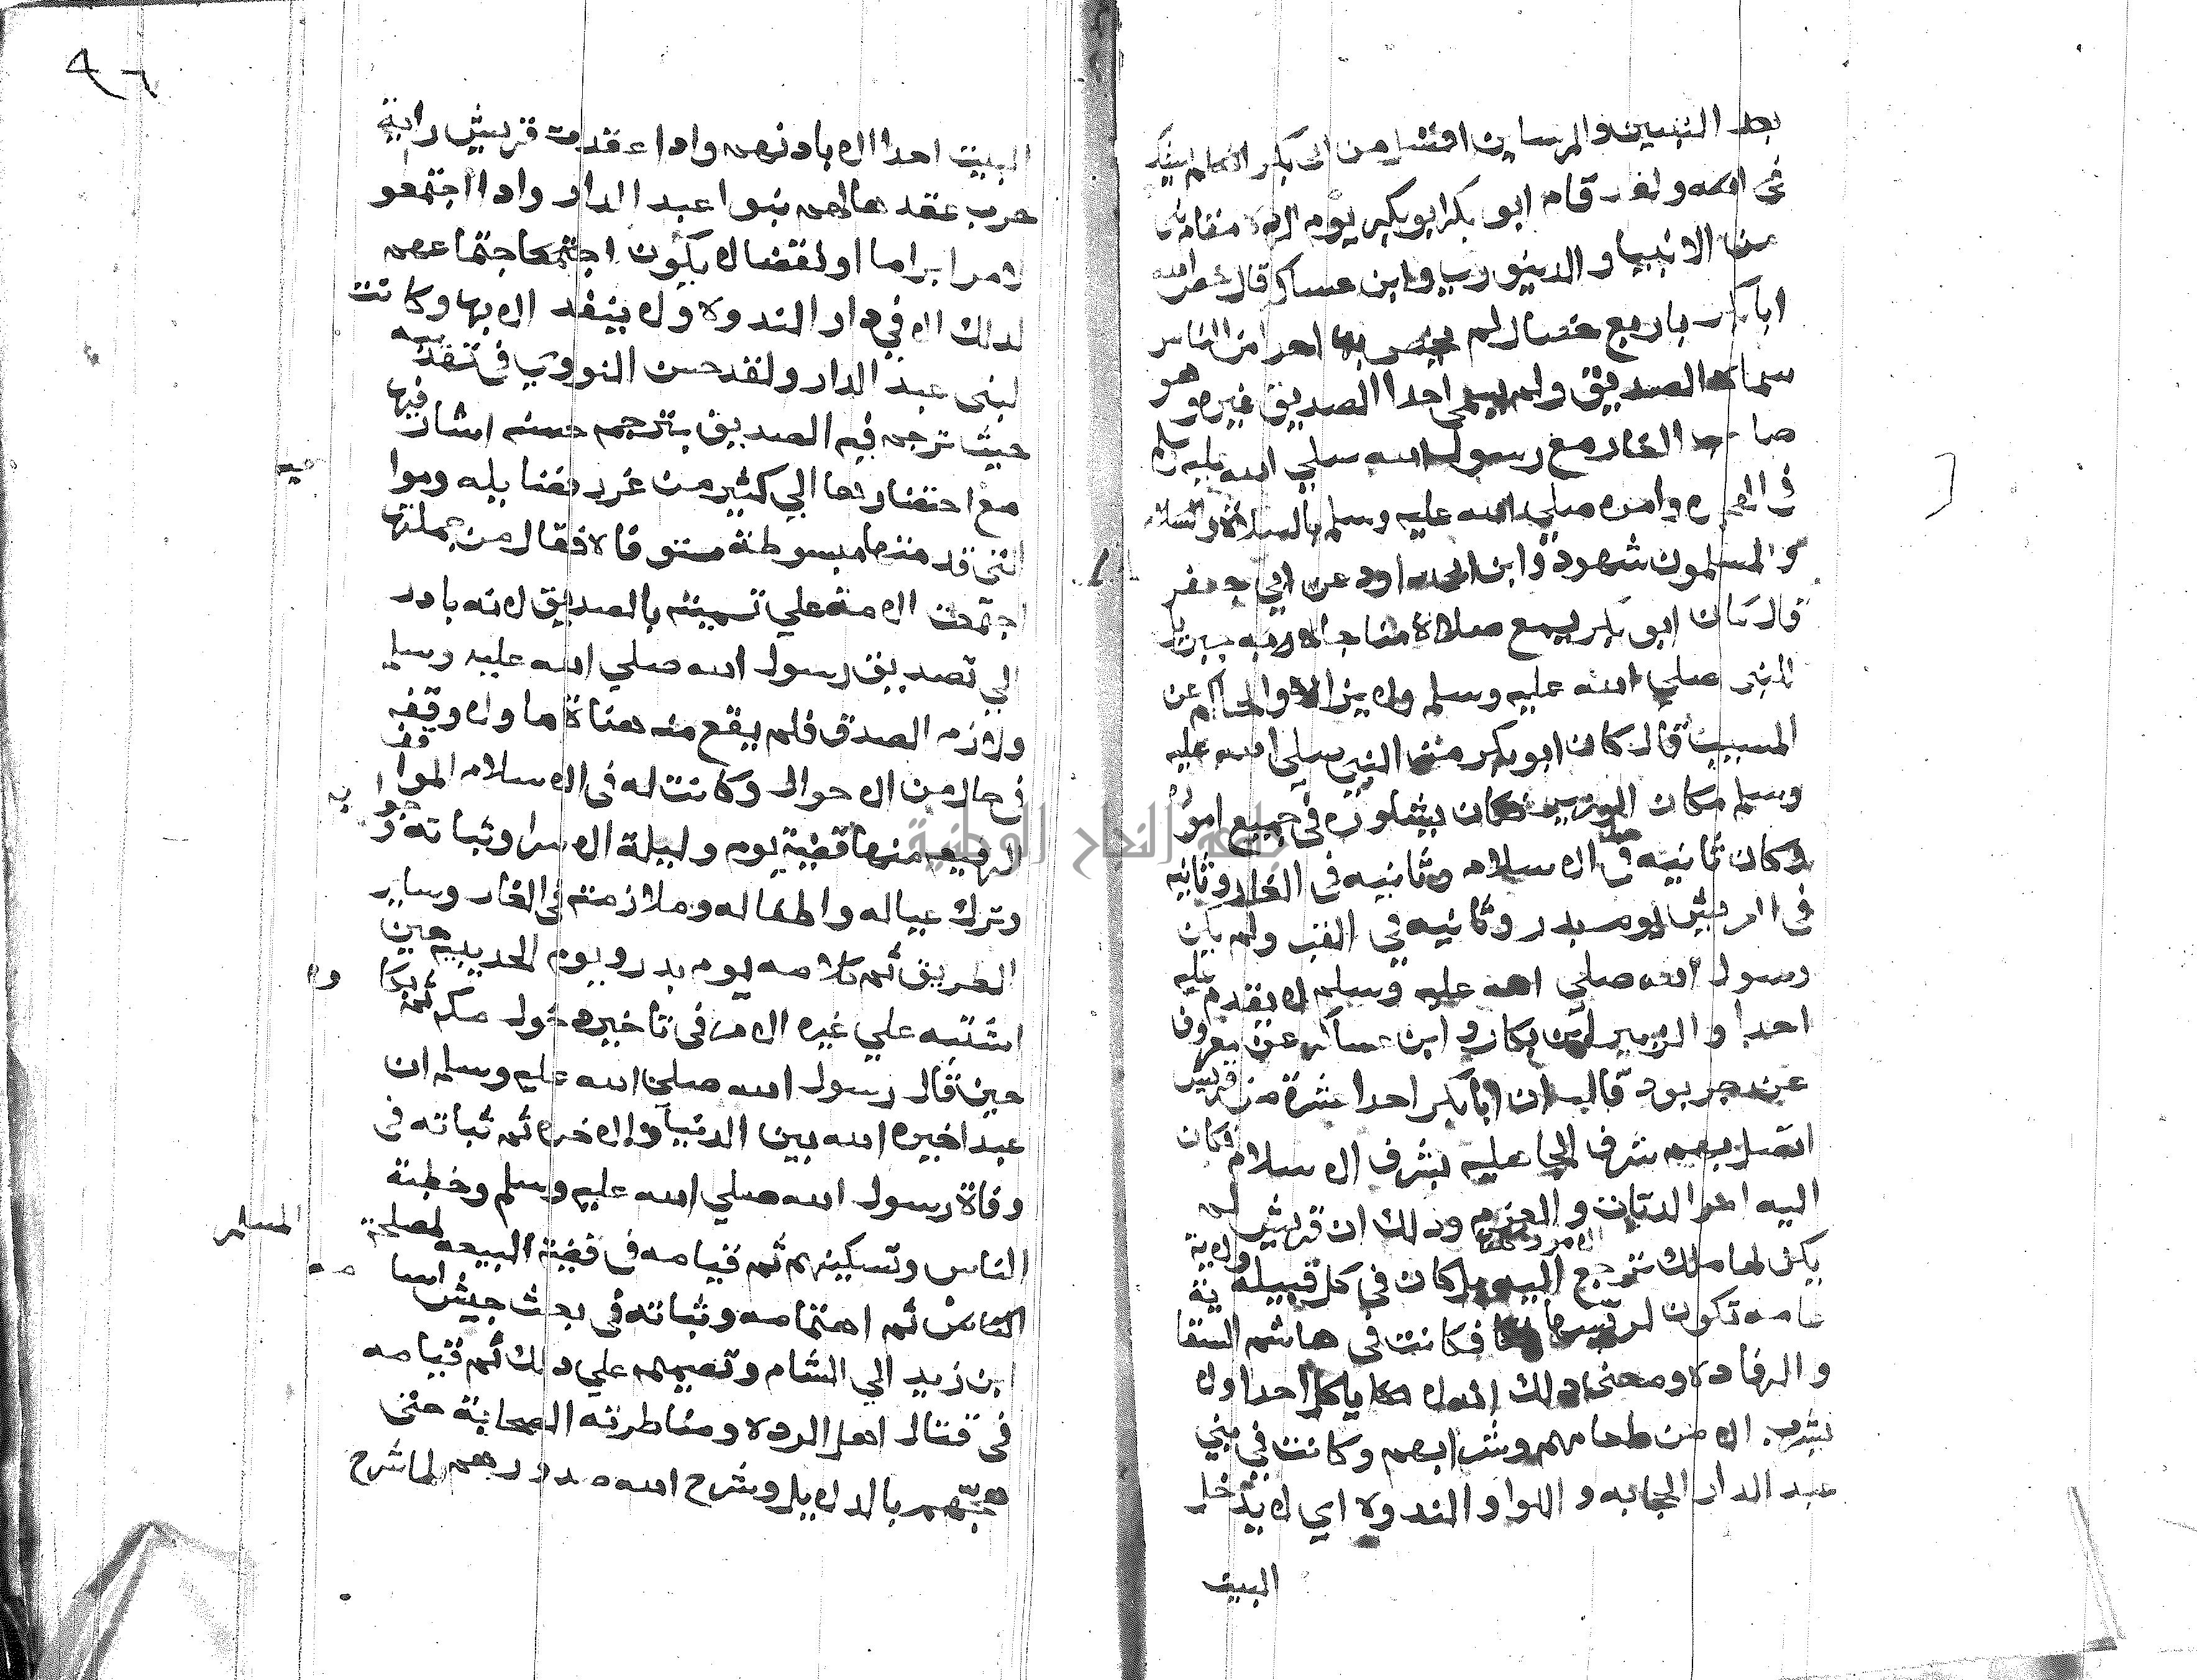 بعد النبيين والمرسلين افضل من ابي بكر
في الله ولقد قام ابو بكر ابو بكر يوم الرده مقام نبي
من الانبيا و الدينوري وابن عساكر قال خص الله
ابا بكر باربع خصال لم يخص بها احدا من الناس
سماه الصديق ولم يسمي احدا الصديق غيره وهو
صاحب الغار مع رسول الله صلي الله عليه وسلم
في الهجره وامره صلي الله عليه وسلم بالصلاة
و المسلمون شهود وابن ابي داود عن ابي جعفر
قال كان ابو بكر يسمع مناجاة جبريل
للنبي صلي الله عليه وسلم ولا يراه والحاكم عن
المسيب قال كان ابو بكر من النبي صلي الله عليه
وسلم مكان الوزير فكان يشاوره في جميع اموره
وكان ثانيه في الاسلام وثانيه في الغار وثانيه
في العريش يوم بدر وثانيه في القبر ولم يكن
رسول الله صلي الله عليه وسلم يقدم عليه
احدا والزبير ابن بكار و ابن عساكر عن معروف
قال ان ابا بكر احد عشرة من قريش
اتصل بهم شرف الجاهليه بشرف الاسلام فكان
اليه امر الديات و الغرم وذلك ان قريش لم
يكن لها ملك ترجع اليه بل كان في كل قبيله ولاية
عامه تكون لرئيسها فكانت في هاشم السقاية
و الرفاده ومعني ذلك انه لا ياكل احدا ولا
يشرب الا من طعامهم وشرابهم وكانت في بني
عبد الدار الحجابه و اللوا و الندوه اي لا يدخل
البيت
البيت احدا الا باذنهم واذا عقدت قريش راية
حرب عقدها لهم بنوا عبد الدار واذا اجتمعو
لامر ابراما او نقضا لا يكون اجتماعهم
لذلك الا في دار الندوه ولا ينفد الا بها وكانت
لبني عبد الدار ولقد حسن النووي في تهذيبه
حيث ترجم فيه الصديق بترجمه حسنه اشار فيها
مع اختصارها الي كثير من غرر فضايله وموا
التي قدمتها مبسوطة مستوفاه فقال من جملتها
اجتمعت الامة علي تسميته بالصديق لانه بادر
الي تصديق رسول الله صلي الله عليه وسلم
ولازم الصدق فلم يقع منه هناة ما ولا وقفه
في حال من الاحوال وكانت له في الاسلام المواقف
الرفيعه منها قضية يوم وليلة الاسرا وثباته وجوابه
وترك عياله واطفاله وملازمته في الغار وساير
الطريق ثم كلامه يوم بدر ويوم الحديبيه حين
اشتبه علي غيره الامر في تاخيره دخول مكه ثم بكاوه
حين قال رسول الله صلي الله عليه وسلم ان
عبدا خيره الله بين الدنيا والاخره ثم ثباته في
وفاة رسول الله صلي الله عليه وسلم وخطبة
الناس وتسكينهم ثم قيامه في قضية البيعه لمصلحة المسلم
الناس ثم اهتمامه وثباته في بعث جيش اسامه
ابن زيد الي الشام وتصميمه علي ذلك ثم قيامه
في قتال اهل الرده ومناظرته الصحابة حتي
حجهم بالدلايل وشرح الله صدورهم لما شرح
جامعة النجاح الوطنية